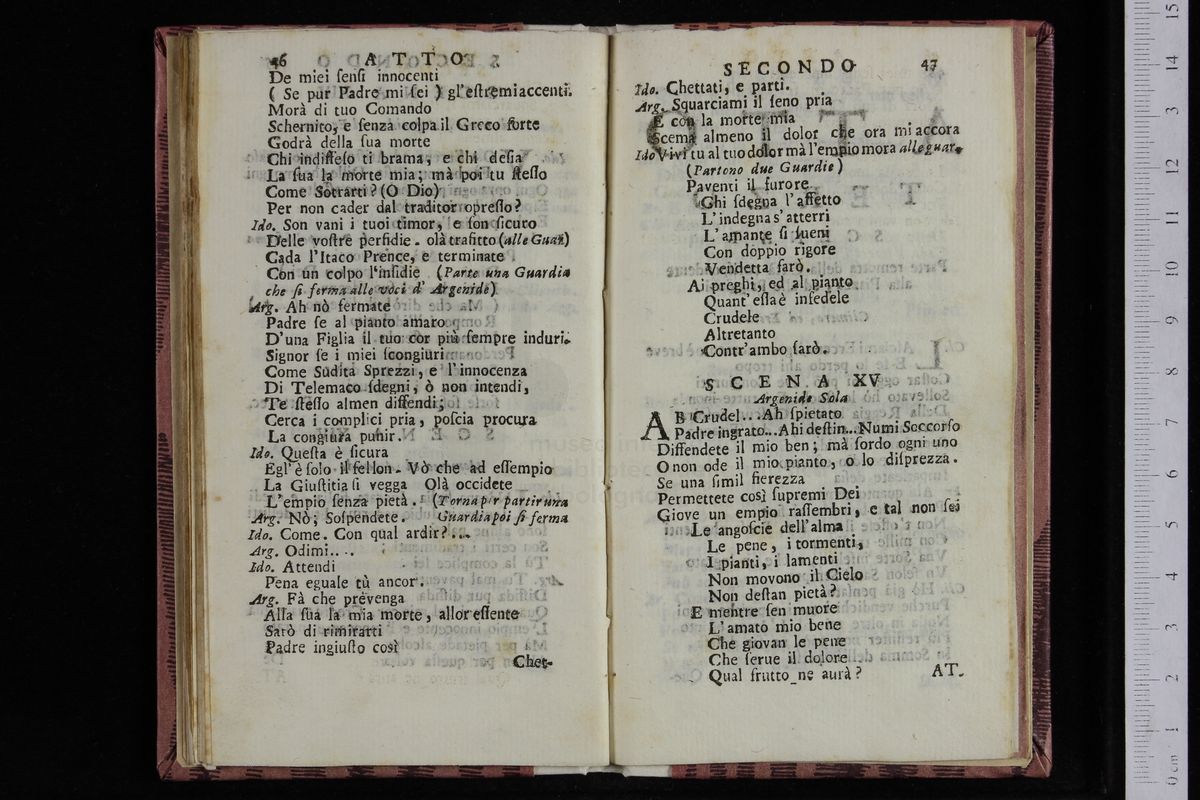 46 ATTO
De miei ſenſi innocenti
( Se pur Padre mi ſei ) gl'eſtremi accenti.
Morà di tuo Comando
Schernito, e ſenza colpa il Greco forte
Godrà della ſua morte
Chi indiffeſo ti brama, e chi deſia
La ſua la morte mia; mà poi tu ſteſſo
Come Sottrarti? (O Dio)
Per non cader dal traditor opreſſo?
Ido. Son vani i tuoi timor, e ſon ſicuro
Delle voſtre perfidie. olà trafitto (alle Guar)
Cada l'Itaco Prence, e terminate
Con un colpo l'inſidie (Parte una Guardia
che ſi ferma alle voci d' Argenide)
Arg. Ah nò fermate
Padre ſe al pianto amaro
D'una Figlia il tuo cor più ſempre induri.
Signor ſe i miei ſcongiuri
Come Sudita Sprezzi, e l'innocenza
Di Telemaco ſdegni, ò non intendi,
Te ſteſſo almen diffendi;
Cerca i complici pria, poſcia procura
La congiura punir.
Ido. Queſta è ſicura
Egl'è ſolo il fellon. Vò che ad eſſempio
La Giuſtitia ſi vegga Olà occidete
L'empio ſenza pietà. (Torna p r partir una
Arg. Nò; Soſpendete. Guardia poi ſi ferma
Ido. Come. Con qual ardir?...
Arg. Odimi....
Ido. Attendi
Pena eguale tù ancor.
Arg. Fà che prevenga
Alla ſua la mia morte, allor eſſente
Sarò di rimirarti
Padre ingiuſto così
Chet-
SECONDO 47
Ido. Chettati, e parti.
Arg. Squarciami il ſeno pria
E con la morte mia
Scema almeno il dolor che ora mi accora
Ido Vivi tu al tuo dolor mà l'empio mora alle guar.
(Partono due Guardie)
Paventi il furore
Chi ſdegna l'affetto
L'indegna s'atterri
L'amante ſi ſueni
Con doppio rigore
Vendetta farò.
Ai preghi, ed al pianto
Quant'eſſa è infedele
Crudele
Altretanto
Contr'ambo ſarò.
SCENA XV
Argenide Sola
AB Crudel... Ah ſpietato
Padre ingrato... Ahi deſtin... Numi Soccorſo
Diffendete il mio ben; mà ſordo ogni uno
O non ode il mio pianto, o lo diſprezza.
Se una ſimil fierezza
Permettete così ſupremi Dei
Giove un empio raſſembri, e tal non ſei
Le angoſcie dell'alma
Le pene, i tormenti,
I pianti, i lamenti
Non movono il Cielo
Non deſtan pietà?
E mentre ſen muore
L'amato mio bene
Che giovan le pene
Che ſerue il dolore
Qual frutto ne aurà?
AT.